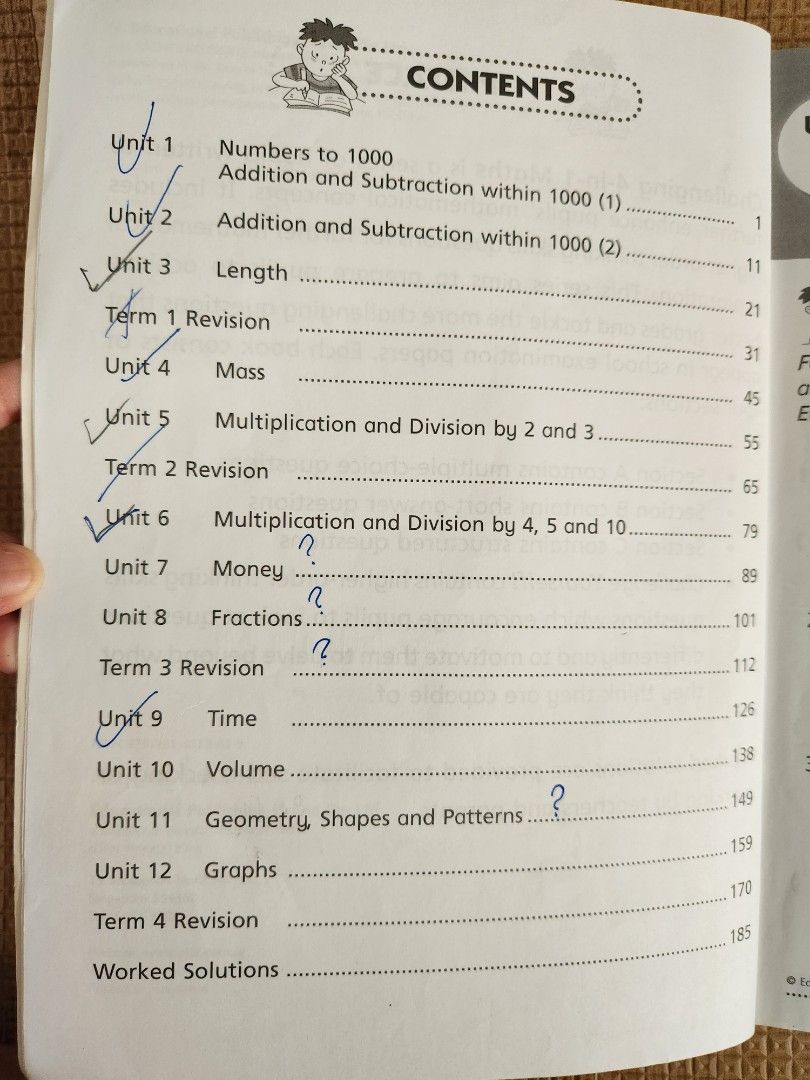 CONTENTS
Unit 1 Numbers to 1000
Addition and Subtraction within 1000 (1) ........ 1
Unit 2 Addition and Subtraction within 1000 (2) ........ 11
Unit 3 Length ........ 21
Term 1 Revision ........ 31
Unit 4 Mass ........ 45
Unit 5 Multiplication and Division by 2 and 3 ........ 55
Term 2 Revision ........ 65
Unit 6 Multiplication and Division by 4, 5 and 10 ........ 79
?
Unit 7 Money ........ 89
?
Unit 8 Fractions ........ 101
?
Term 3 Revision ........ 112
Unit 9 Time ........ 126
Unit 10 Volume ........ 138
?
Unit 11 Geometry, Shapes and Patterns ........ 149
Unit 12 Graphs ........ 159
Term 4 Revision ........ 170
Worked Solutions ........ 185